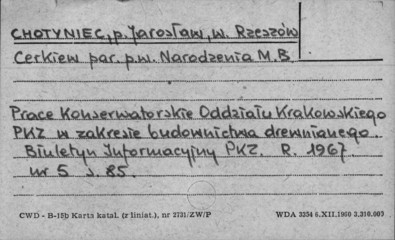 CHOTYNIEC, p. Jarosław, w. Rzeszów
Cerkiew par. p.w. Narodzenia M.B.
Prace Konserwatorskie Oddziału Krakowskiego
PKZ w zakresie budownictwa drewnianego.
Biuletyn Informacyjny PKZ. R. 1967
nr 5 s. 85.
CWD - B-18b Karta katal. (z liniat.), nr 2731/ZW/P WDA 3354 6.XII.1960 3.310.003